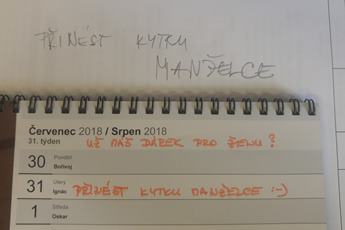 PŘINÉST KYTKU
MANŽELCE
Červenec 2018 / Srpen 2018
31. týden UŽ MÁŠ DÁREK PRO ŽENU?
30 Pondělí
Bořivoj
31 Úterý
Ignác PŘINÉST KYTKU MANŽELCE :-)
1 Středa
Oskar